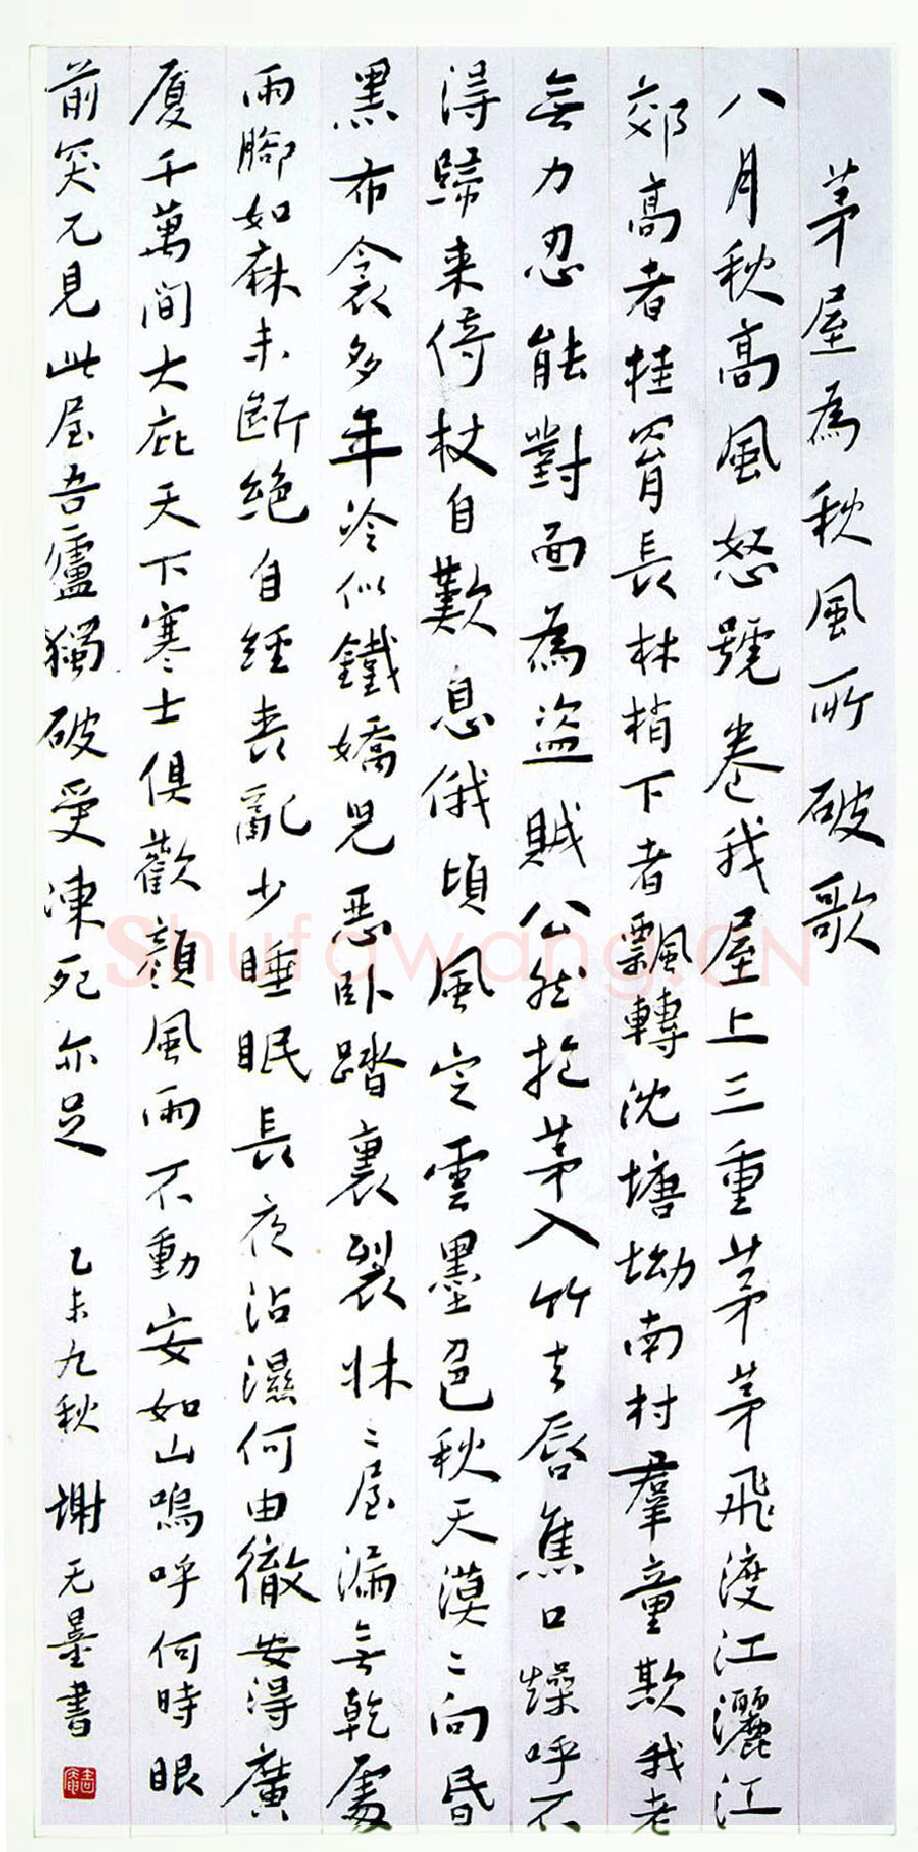 茅屋為秋風所破歌
八月秋高風怒號卷我屋上三重茅茅飛渡江灑江
郊高者挂罥長林梢下者飄轉沈塘坳南村羣童欺我老
無力忍能對面為盜賊公然抱茅入竹去唇焦口燥呼不
得歸来倚杖自歎息俄頃風定雲墨色秋天漠〻向昏
黑布衾多年冷似鐵嬌兒惡卧踏裏裂牀〻屋漏無乾處
雨腳如麻未斷絕自經喪亂少睡眠長夜沾濕何由徹安得廣
厦千萬間大庇天下寒士俱歡顏風雨不動安如山嗚呼何時眼
前突兀見此屋吾廬獨破受凍死亦足 乙未九秋 謝无量書
Shufawang.CN